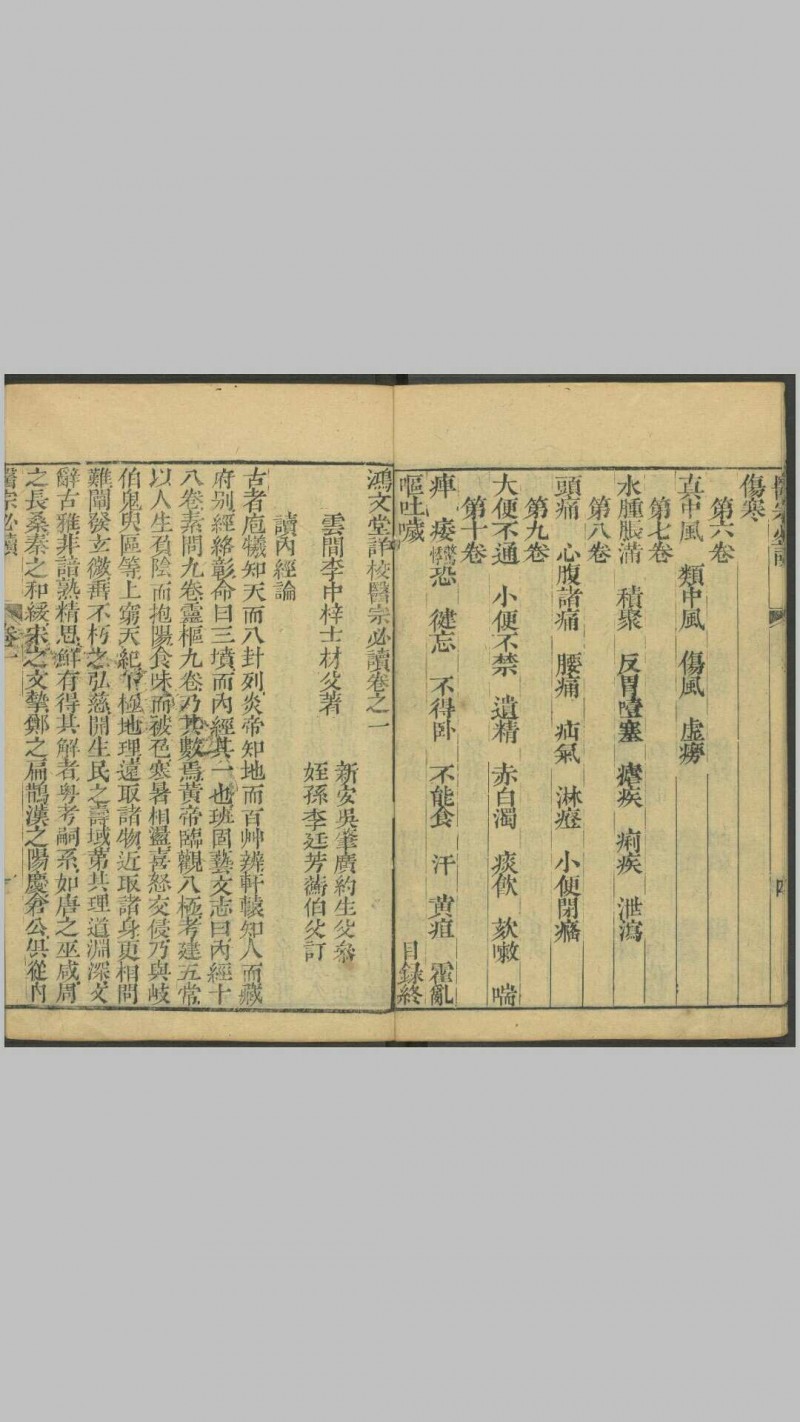 醫宗必讀
四
傷寒
第六卷
真中風　類中風　傷風　虛癆
第七卷
水腫脹滿　積聚　反胃噎塞　瘧疾　痢疾　泄瀉
第八卷
頭痛　心腹諸痛　腰痛　疝氣　淋癃　小便閉癃
第九卷
大便不通　小便不禁　遺精　赤白濁　痰飲　欬嗽　喘
第十卷
痺　痿　驚　恐　健忘　不得臥　不能食　汗　黃疸　霍亂
嘔吐噦　目錄終
鴻文堂詳校醫宗必讀卷之一
新安吳肇廣約生父參
雲間李中梓士材父著
姪孫李廷芳蘅伯父訂
讀內經論
古者庖犧知天而八卦列炎帝知地而百艸辨軒轅知人而藏
府別經絡彰命曰三墳而內經其一也班固藝文志曰內經十
八卷素問九卷靈樞九卷乃其數焉黃帝臨觀八極考建五常
以人生負陰而抱陽食味而被色寒暑相盪喜怒交侵乃與岐
伯鬼臾區等上窮天紀下極地理遠取諸物近取諸身更相問
難闡發玄微垂不朽之弘慈開生民之壽域第其理道淵深文
辭古雅非諳熟精思鮮有得其解者粵考嗣系如唐之巫咸周
之長桑秦之和緩宋之文摯鄭之扁鵲漢之陽慶倉公俱從內
醫宗必讀　卷一　一